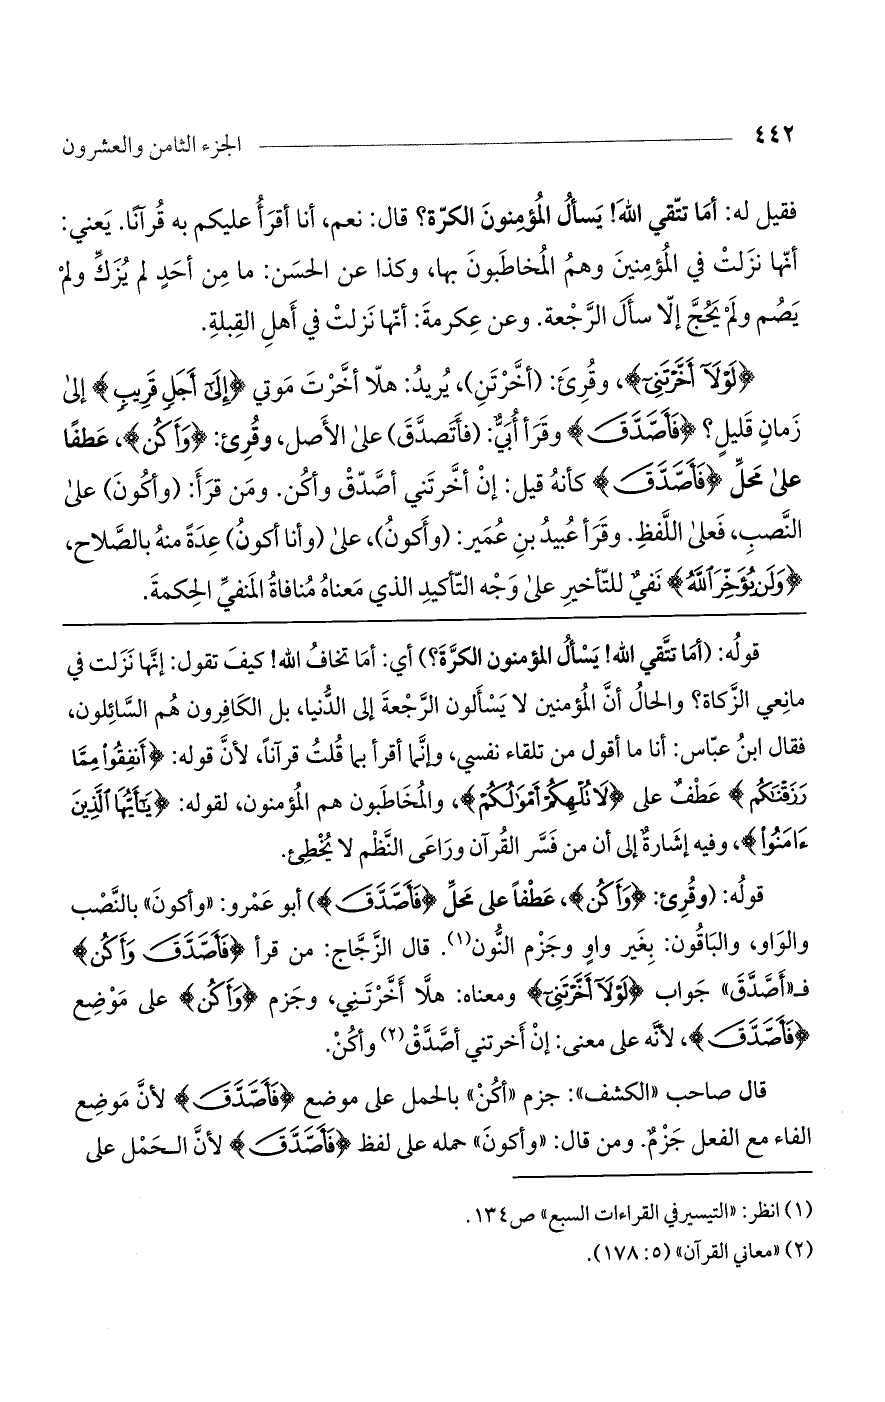 ٤٤٢ الجزء الثامن والعشرون
فقيل له: أمَا تتّقي اللهَ! يَسألُ المُؤمِنونَ الكرّة؟ قال: نعم، أنا أقرَأُ عليكم به قُرآنًا. يَعني:
أنّها نزَلتْ في المُؤمِنينَ وهمُ المُخاطَبونَ بها، وكذا عن الحَسَن: ما مِن أحَدٍ لم يُزَكِّ ولمْ
يَصُم ولَمْ يَحُجَّ إلّا سألَ الرَّجْعة. وعن عِكرمةَ: أنّها نَزلتْ في أهلِ القِبلةِ.
﴿لَوْلَآ أَخَّرْتَنِىٓ﴾، وقُرِئَ: (أخَّرْتَنِ)، يُريدُ: هلّا أخَّرْتَ مَوتي ﴿إِلَىٰٓ أَجَلٍ قَرِيبٍ﴾ إلىٰ
زَمانٍ قَليلٍ؟ ﴿فَأَصَّدَّقَ﴾ وقَرَأ أُبَيٌّ: (فأتَصدَّقَ) علىٰ الأصل، وقُرِئ: ﴿وَأَكُن﴾، عَطفًا
علىٰ مَحلِّ ﴿فَأَصَّدَّقَ﴾ كأنهُ قيل: إنْ أخَّرتَني أصَّدّقْ وأكُن. ومَن قرَأَ: (وأكُونَ) علىٰ
النَّصبِ، فَعلىٰ اللَّفظِ. وقَرَأ عُبيدُ بنِ عُمَير: (وأَكونُ)، علىٰ (وأنا أكونُ) عِدَةً منهُ بالصَّلاح،
﴿وَلَن يُؤَخِّرَ ٱللَّهُ﴾ نَفيٌ للتّأخيرِ علىٰ وَجْه التّأكيدِ الذي مَعناهُ مُنافاةُ المَنفيِّ الحِكمةَ.
قولُه: (أمَا تتَّقي الله! يَسْألُ المؤمنون الكرَّةَ؟) أي: أمَا تخافُ الله! كيفَ تقول: إنَّها نَزَلت في
مانِعي الزَّكاة؟ والحالُ أنَّ المُؤمنين لا يَسْألون الرَّجْعةَ إلى الدُّنيا، بل الكَافِرون هُم السَّائِلون،
فقال ابنُ عبّاس: أنا ما أقول من تلقاء نفسي، وإنَّما أقرأ بما قُلتُ قرآناً، لأنَّ قوله: ﴿أَنفِقُوا۟ مِمَّا
رَزَقْنَٰكُم﴾ عَطْفٌ على ﴿لَا تُلْهِكُمْ أَمْوَٰلُكُمْ﴾، والمُخَاطَبون هم المُؤمنون، لقوله: ﴿يَٰٓأَيُّهَا ٱلَّذِينَ
ءَامَنُوا۟﴾، وفيه إشارةٌ إلى أن من فَسَّر القُرآن ورَاعَى النَّظْم لا يُخْطِئ.
قولُه: (وقُرِئ: ﴿وَأَكُن﴾، عَطْفاً على مَحَلِّ ﴿فَأَصَّدَّقَ﴾) أبو عَمْرو: «وأكونَ» بالنَّصْب
والوَاو، والبَاقُون: بِغَير واوٍ وجَزْم النُّون(١). قال الزَّجَّاج: من قرأ ﴿فَأَصَّدَّقَ وَأَكُن﴾
فـ«أصَّدَّقَ» جَواب ﴿لَوْلَآ أَخَّرْتَنِىٓ﴾ ومعناه: هلَّا أخَّرْتَـنِي، وجَزم ﴿وَأَكُن﴾ على مَوْضِع
﴿فَأَصَّدَّقَ﴾، لأنَّه على معنى: إنْ أخرتني أصَّدَّقْ(٢) وأكُنْ.
قال صاحب «الكشف»: جزم «أكُنْ» بالحمل على موضع ﴿فَأَصَّدَّقَ﴾ لأنَّ مَوضِع
الفاء مع الفعل جَزْمٌ. ومن قال: «وأكونَ» حمله على لفظ ﴿فَأَصَّدَّقَ﴾ لأنَّ الـحَمْل على
(١) انظر: «التيسير في القراءات السبع» ص١٣٤.
(٢) «معاني القرآن» (٥: ١٧٨).